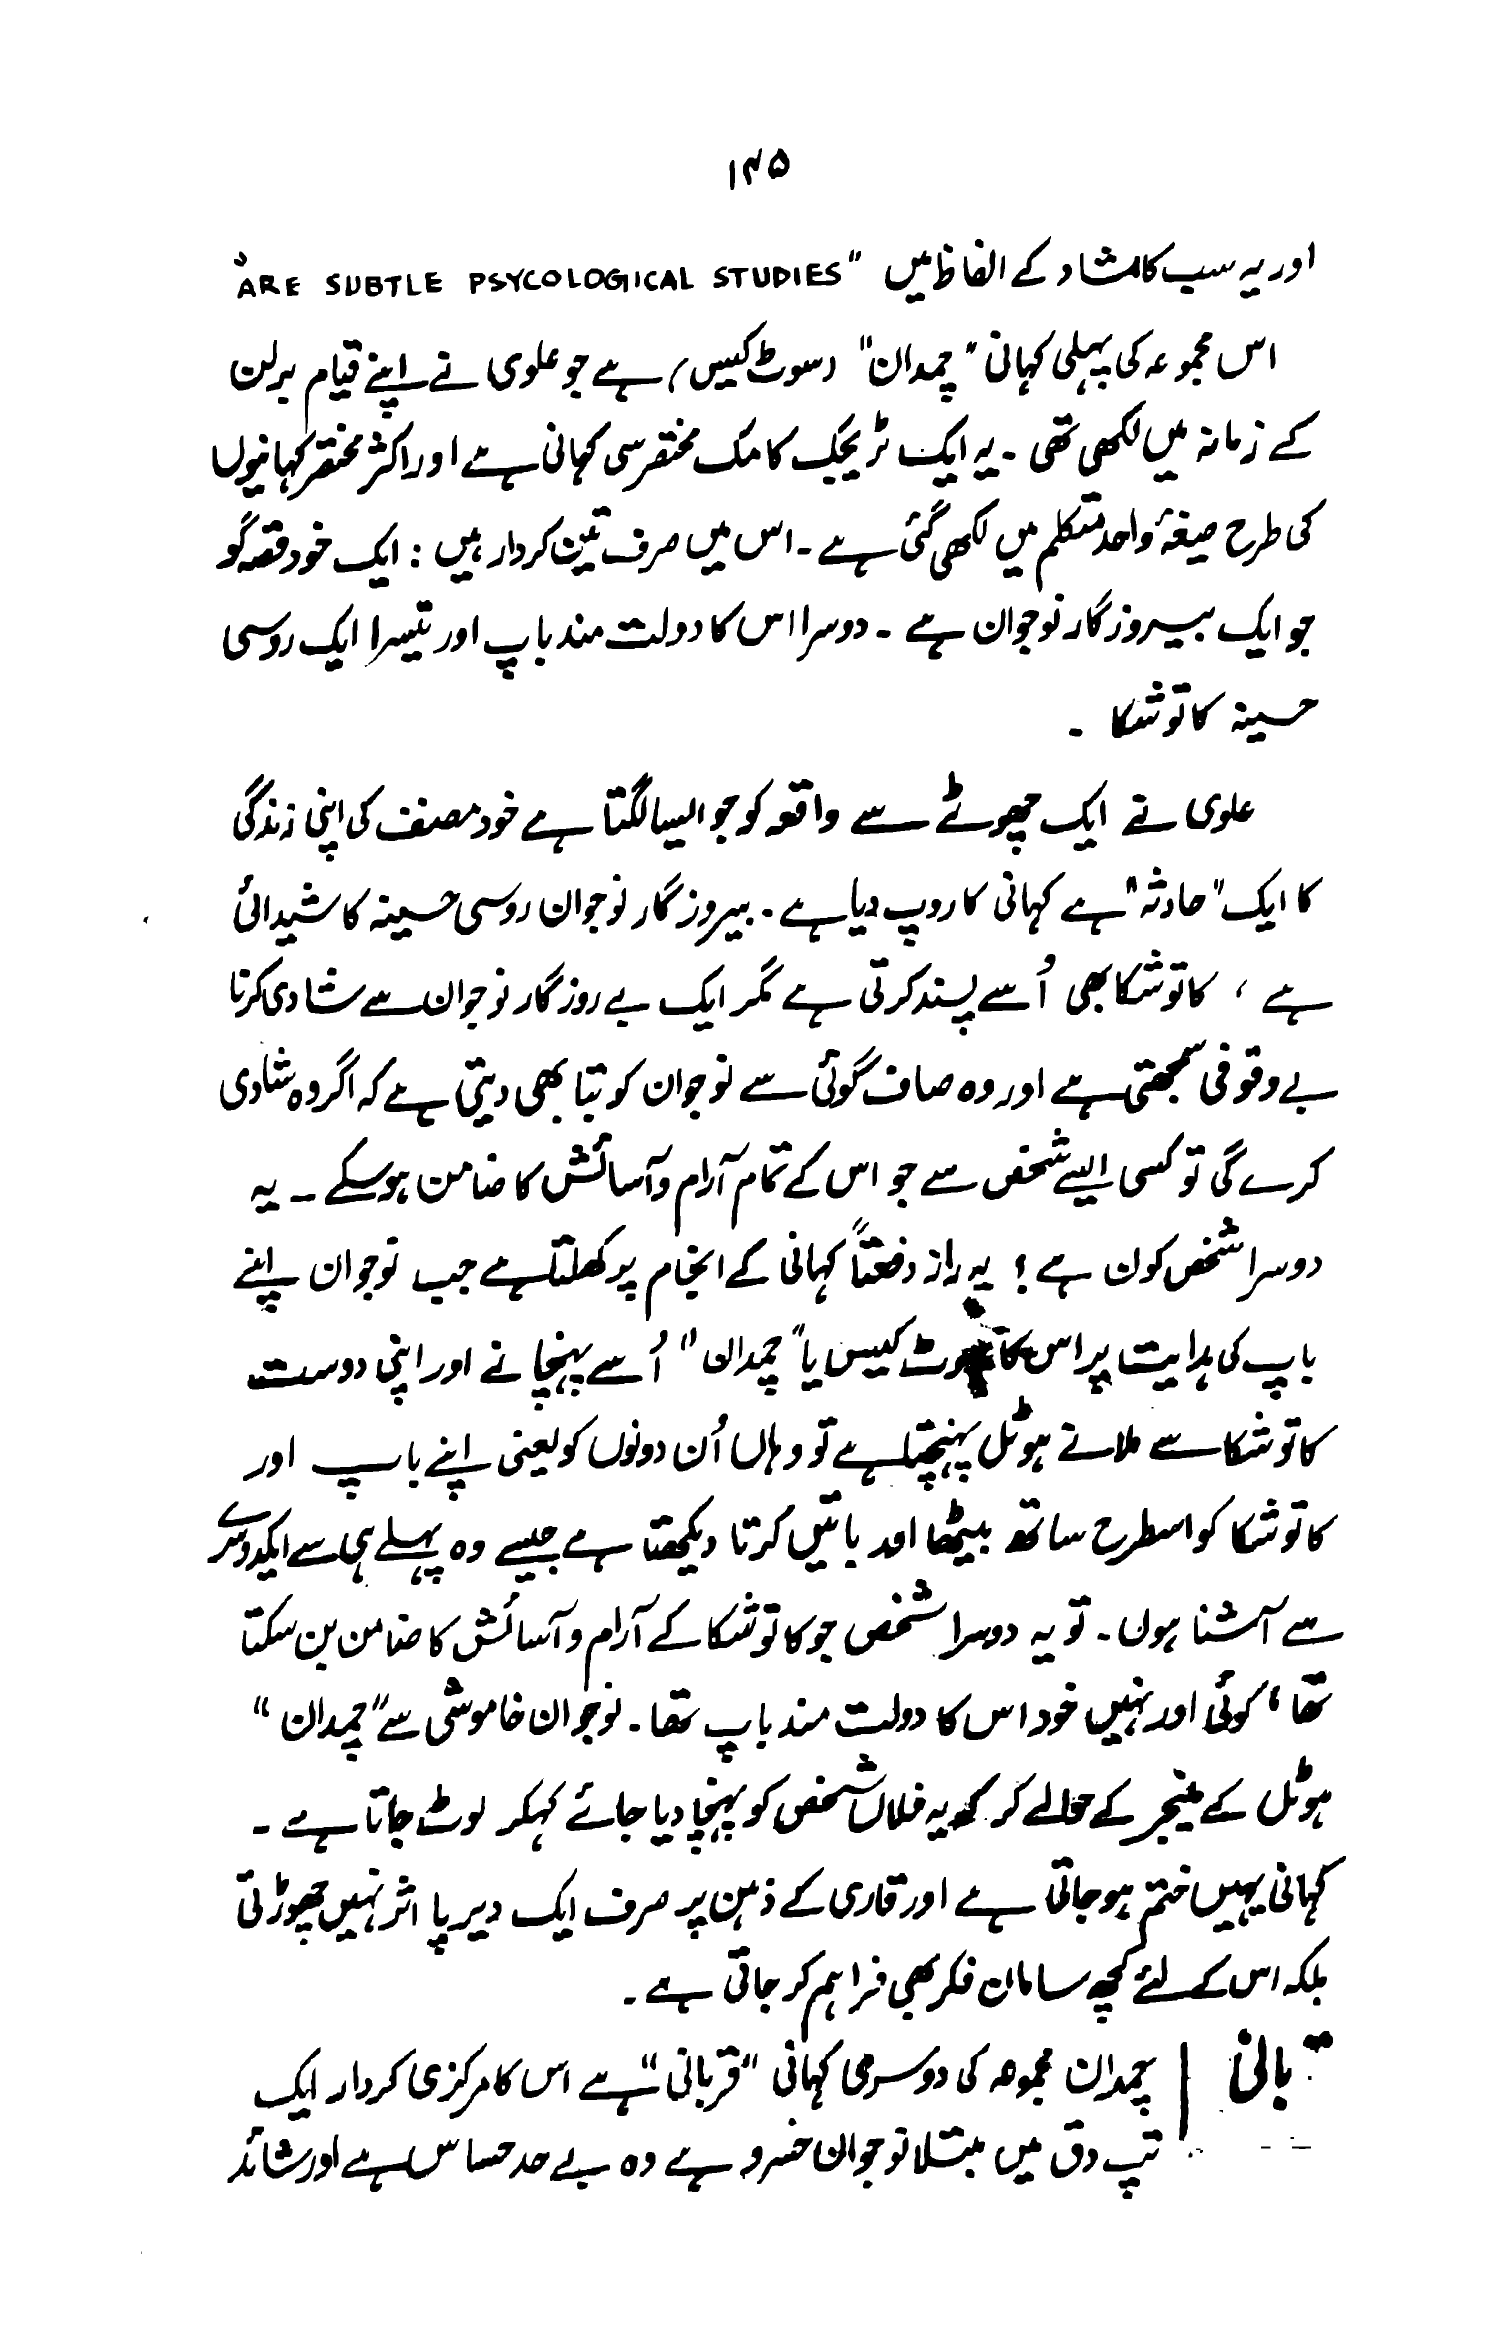 ۱۴۵
اور یہ سب کامشاد کے الفاظ میں "ARE SUBTLE PSYCOLOGICAL STUDIES"
اس مجموعہ کی پہلی کہانی "چمدان" (سوٹ کیس) ہے جو علوی نے اپنے قیام برلن
کے زمانہ میں لکھی تھی۔ یہ ایک ٹریجک کامک مختصر سی کہانی ہے اور اکثر مختصر کہانیوں
کی طرح صیغۂ واحد متکلم میں لکھی گئی ہے۔ اس میں صرف تین کردار ہیں: ایک خود قصہ گو
جو ایک بیروزگار نوجوان ہے۔ دوسرا اس کا دولت مند باپ اور تیسرا ایک روسی
حسینہ کاتوشکا۔
علوی نے ایک چھوٹے سے واقعہ کو جو ایسا لگتا ہے خود مصنف کی اپنی زندگی
کا ایک "حادثہ" ہے کہانی کا روپ دیا ہے۔ بیروزگار نوجوان روسی حسینہ کا شیدائی
ہے، کاتوشکا بھی اُسے پسند کرتی ہے مگر ایک بے روزگار نوجوان سے شادی کرنا
بے وقوفی سمجھتی ہے اور وہ صاف گوئی سے نوجوان کو بتا بھی دیتی ہے کہ اگر وہ شادی
کرے گی تو کسی ایسے شخص سے جو اس کے تمام آرام و آسائش کا ضامن ہو سکے۔ یہ
دوسرا شخص کون ہے؟ یہ راز دفعتاً کہانی کے انجام پر کھلتا ہے جب نوجوان اپنے
باپ کی ہدایت پر اس کا سوٹ کیس یا "چمدان" اُسے پہنچانے اور اپنی دوست
کاتوشکا سے ملانے ہوٹل پہنچتا ہے تو وہاں اُن دونوں کو یعنی اپنے باپ اور
کاتوشکا کو اسطرح ساتھ بیٹھا اور باتیں کرتا دیکھتا ہے جیسے وہ پہلے ہی سے ایکدوسرے
سے آشنا ہوں۔ تو یہ دوسرا شخص جو کاتوشکا کے آرام و آسائش کا ضامن بن سکتا
تھا، کوئی اور نہیں خود اس کا دولت مند باپ تھا۔ نوجوان خاموشی سے "چمدان"
ہوٹل کے منیجر کے حوالے کر کے یہ فلاں شخص کو پہنچا دیا جائے کہکر لوٹ جاتا ہے۔
کہانی یہیں ختم ہو جاتی ہے اور قاری کے ذہن پر صرف ایک دیرپا اثر نہیں چھوڑتی
بلکہ اس کے لئے کچھ سامان فکر بھی فراہم کر جاتی ہے۔
قربانی | چمدان مجموعہ کی دوسری کہانی "قربانی" ہے اس کا مرکزی کردار ایک
تپ دق میں مبتلا نوجوان خسرو ہے وہ بے حد حساس ہے اور شائد